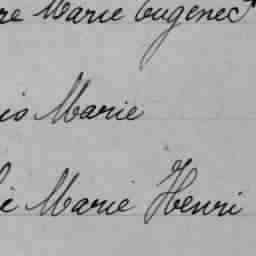 re Marie Eugène
is Marie
ie Marie Henri